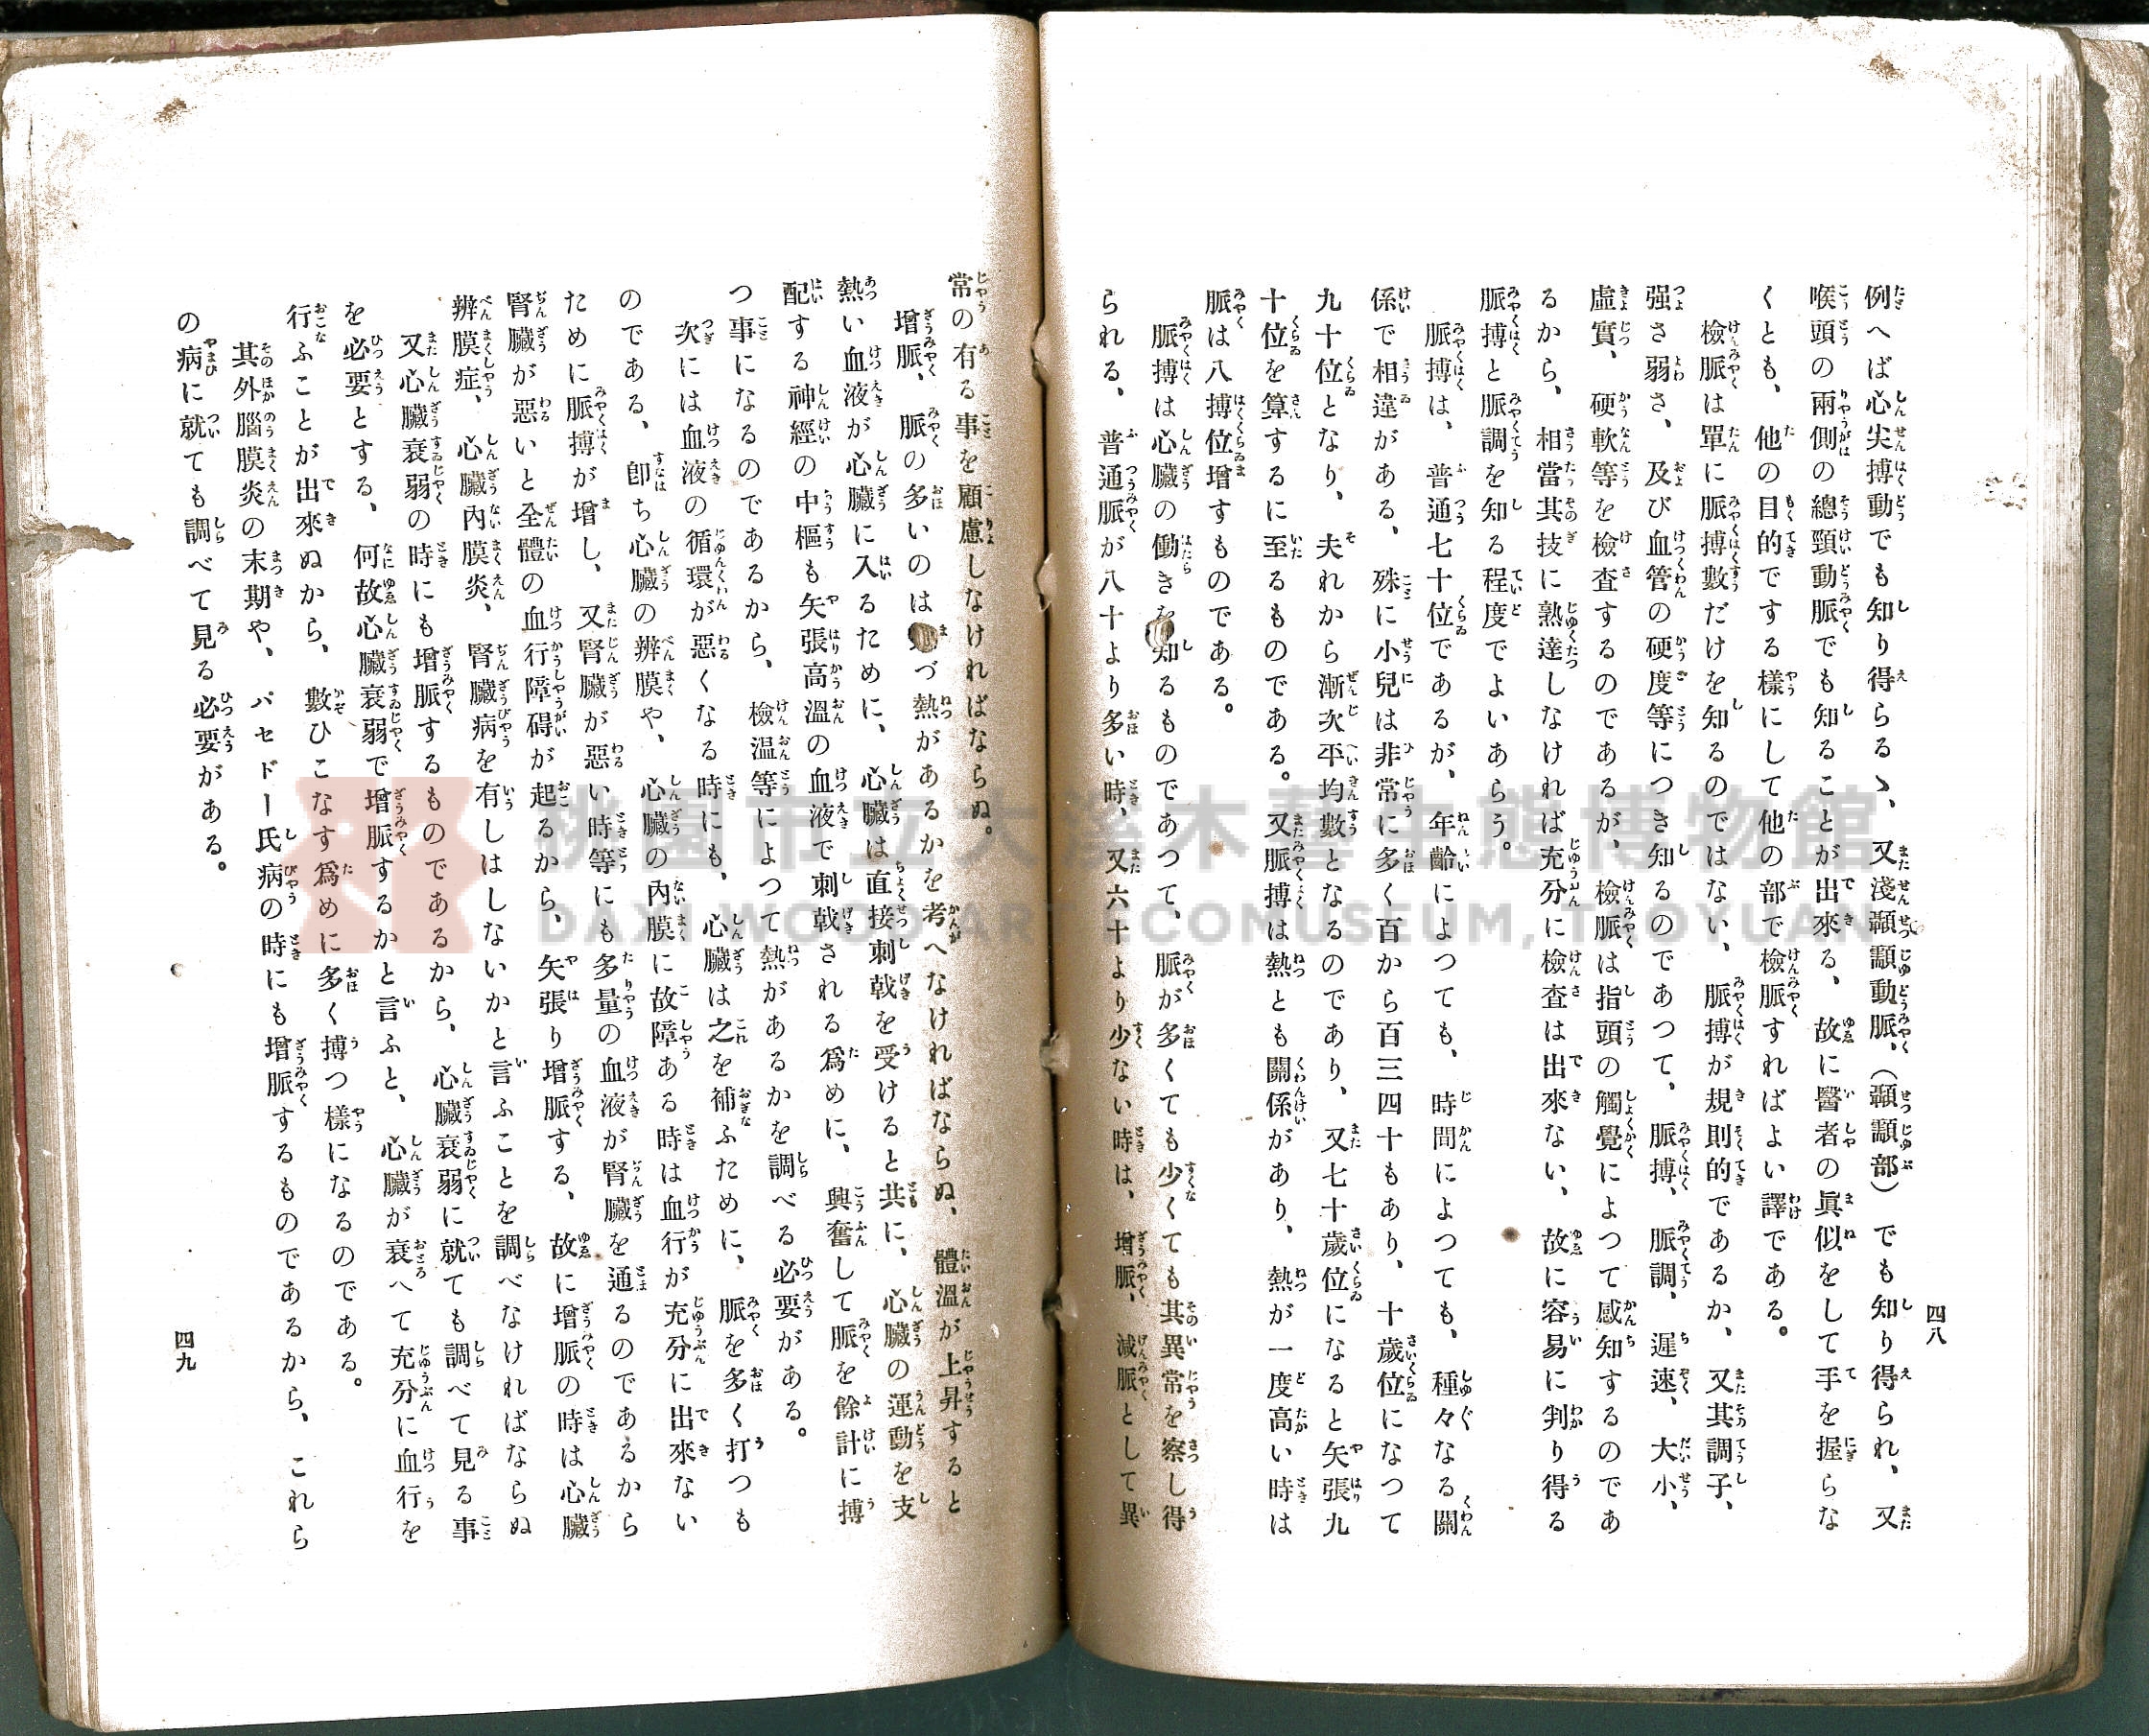 四八
例へば心尖搏動でも知り得らるゝ、又淺顳顬動脈、（顳顬部）でも知り得られ、又
喉頭の兩側の總頸動脈でも知ることが出來る、故に醫者の眞似をして手を握らな
くとも、他の目的でする樣にして他の部で檢脈すればよい譯である。
檢脈は單に脈搏數だけを知るのではない、脈搏が規則的であるか、又其調子、
强さ弱さ、及び血管の硬度等につき知るのであつて、脈搏、脈調、遲速、大小、
虛實、硬軟等を檢査するのであるが、檢脈は指頭の觸覺によつて感知するのであ
るから、相當其技に熟達しなければ充分に檢査は出來ない、故に容易に判り得る
脈搏と脈調を知る程度でよいあらう。
脈搏は、普通七十位であるが、年齡によつても、時間によつても、種々なる關
係で相違がある、殊に小兒は非常に多く百から百三四十もあり、十歲位になつて
九十位となり、夫れから漸次平均數となるのであり、又七十歲位になると矢張九
十位を算するに至るものである。又脈搏は熱とも關係があり、熱が一度高い時は
脈は八搏位增すものである。
脈搏は心臟の働きを知るものであつて、脈が多くても少くても其異常を察し得
られる、普通脈が八十より多い時、又六十より少ない時は、增脈、減脈として異
常の有る事を顧慮しなければならぬ。
增脈、脈の多いのは づ熱があるかを考へなければならぬ、體溫が上昇すると
熱い血液が心臟に入るために、心臟は直接刺戟を受けると共に、心臟の運動を支
配する神經の中樞も矢張高溫の血液で刺戟される爲めに、興奮して脈を餘計に搏
つ事になるのであるから、檢溫等によつて熱があるかを調べる必要がある。
次には血液の循環が惡くなる時にも、心臟は之を補ふために、脈を多く打つも
のである、卽ち心臟の辨膜や、心臟の內膜に故障ある時は血行が充分に出來ない
ために脈搏が增し、又腎臟が惡い時等にも多量の血液が腎臟を通るのであるから
腎臟が惡いと全體の血行障碍が起るから、矢張り增脈する、故に增脈の時は心臟
辨膜症、心臟內膜炎、腎臟病を有しはしないかと言ふことを調べなければならぬ
又心臟衰弱の時にも增脈するものであるから、心臟衰弱に就ても調べて見る事
を必要とする、何故心臟衰弱で增脈するかと言ふと、心臟が衰へて充分に血行を
行ふことが出來ぬから、數ひこなす爲めに多く搏つ樣になるのである。
其外腦膜炎の末期や、バセドー氏病の時にも增脈するものであるから、これら
の病に就ても調べて見る必要がある。
四九
桃園市立大溪木藝生態博物館
DAXI WOOD ART ECOMUSEUM, TAOYUAN